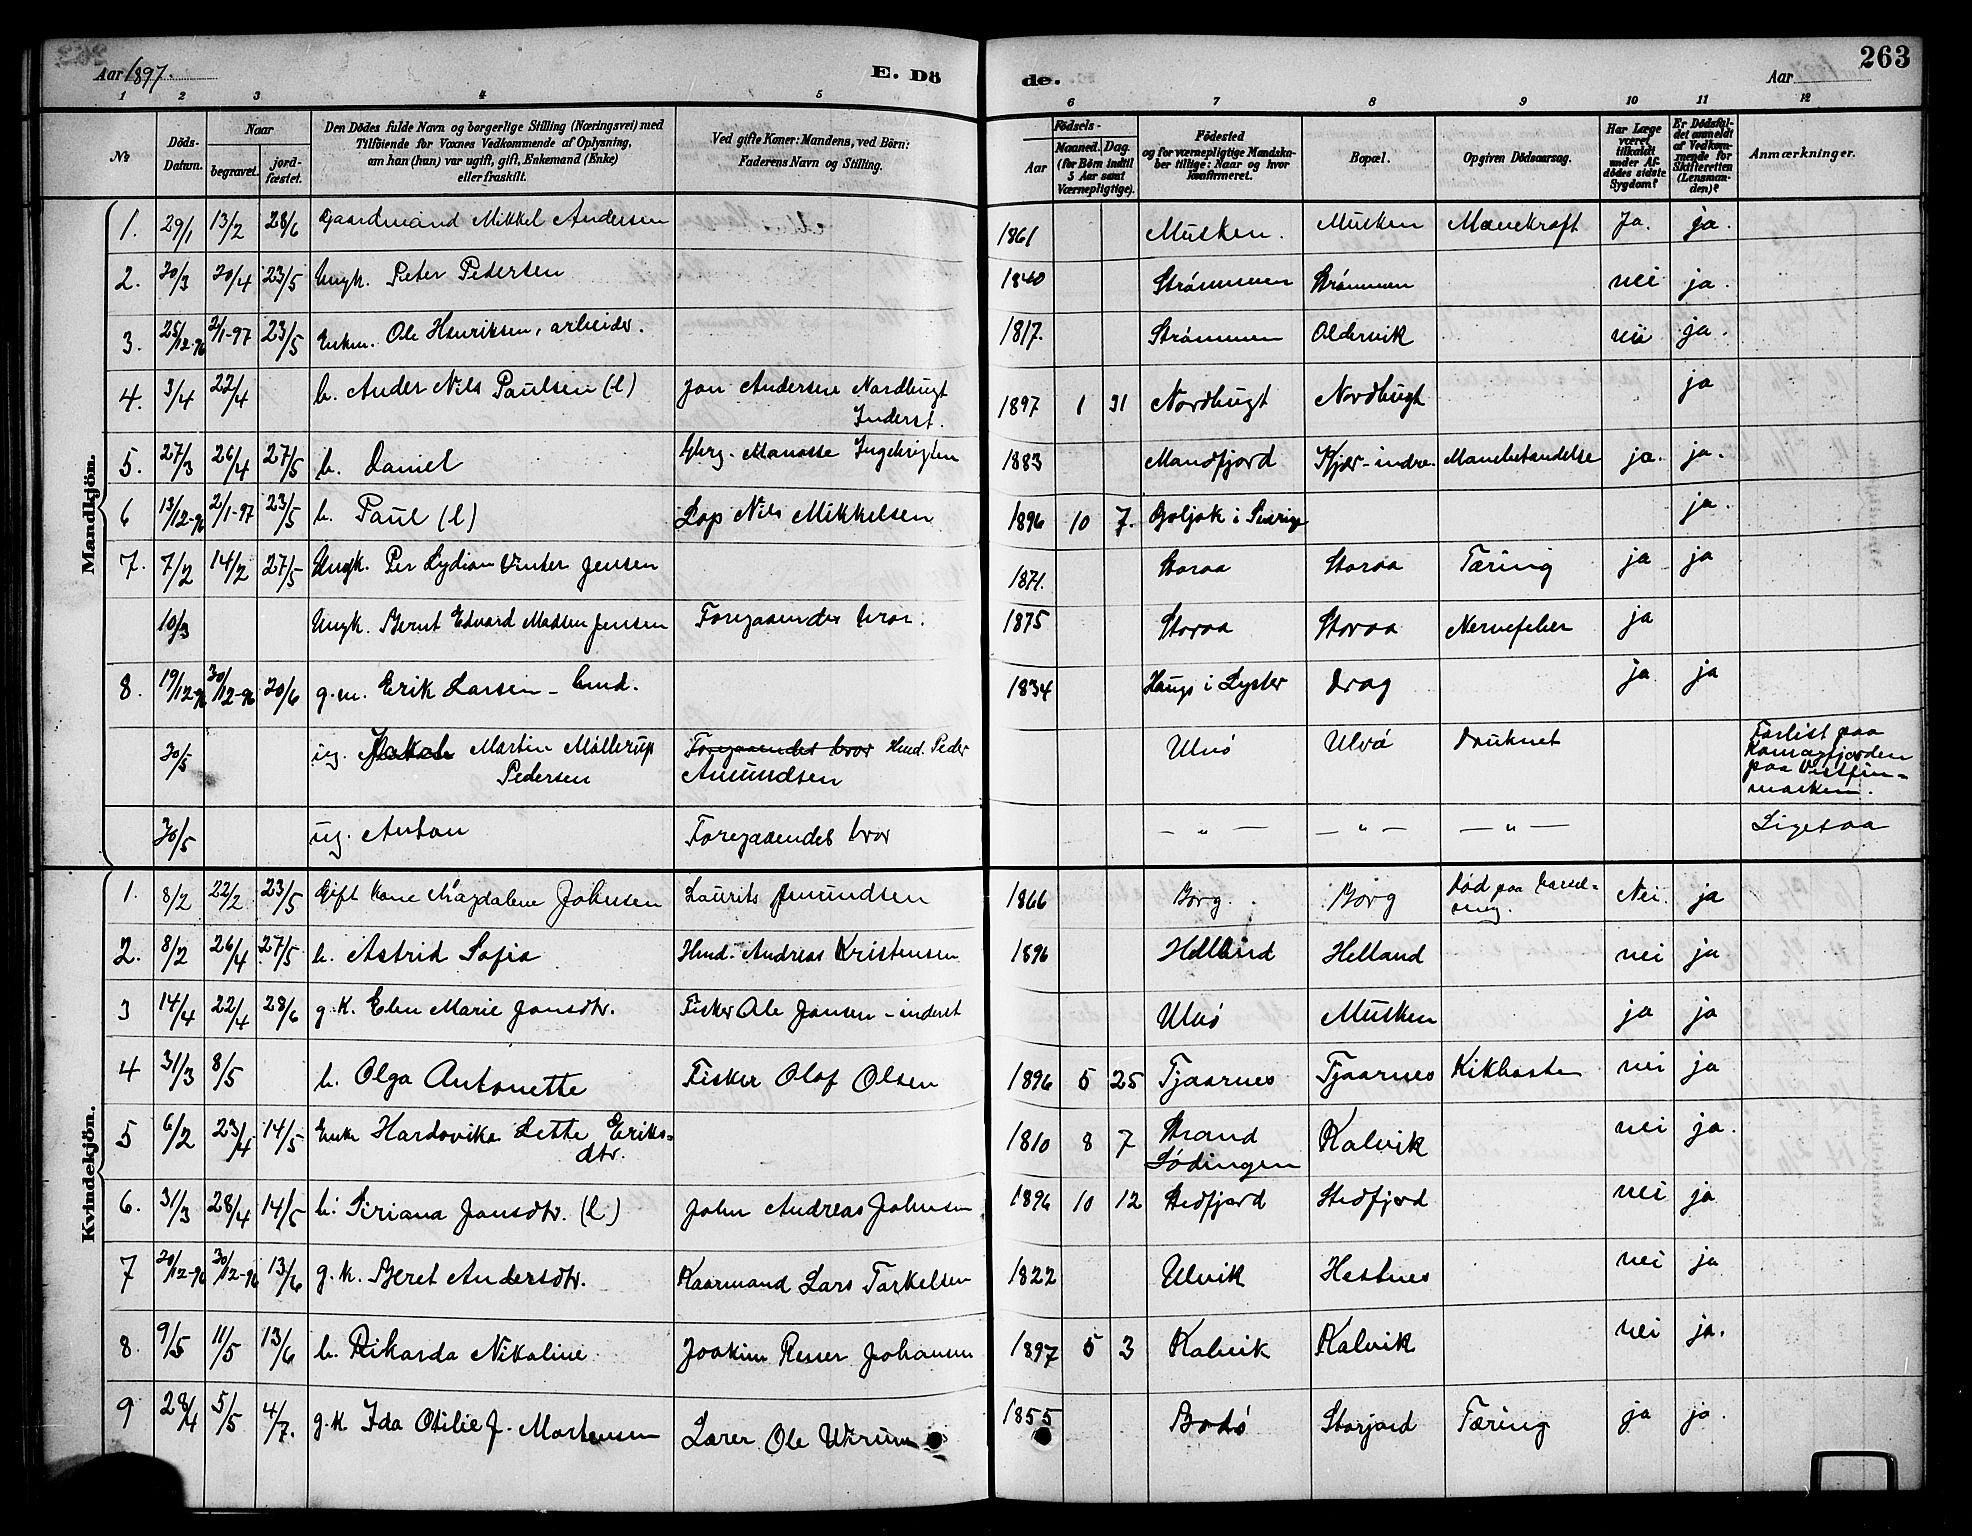 Aar 1897.
E. Dö
de.
Aar
263
1 2 3 4 5 6 7 8 9 10 11 12
No
Döds-Datum.
Naar
begravet.
jord-fæstet.
Den Dödes fulde Navn og borgerlige Stilling (Næringsvei) med
Tilföiende for Voxnes Vedkommende af Oplysning,
om han (hun) var ugift, gift, Enkemand (Enke)
eller fraskilt.
Ved gifte Koner: Mandens, ved Börn:
Faderens Navn og Stilling.
Födsels-
Aar
Maaned. Dag.
(for Börn indtil
5 Aar samt
Værnepligtige).
Födested
og for værnepligtige Mandska-
ber tillige: Naar og hvor
konfirmeret.
Bopæl.
Opgiven Dödsaarsag.
Har Læge
været
tilkaldt
under Af-
dödes sidste
Sygdom?
Er Dödsfal-
det anmeldt
af Vedkom-
mende for
Skifteretten
(Lensman-
den)?
Anmærkninger.
Mandkjön.
1. 29/1 13/2 28/6 Gaardmand Mikkel Andersen 1861 Musken. Musken Mavekræft Ja. ja.
2. 20/3 20/4 23/5 Ungk. Peter Pedersen 1840 Strømmen Strømmen nei ja.
3. 25/12-96 2/1-97 23/5 Enkm. Ole Henriksen, arbeider. 1817. Strømmen Oldervik nei ja.
4. 3/4 22/4 b. Ander Nils Paulsen (l) Jon Andersen Nordbugt
Inderst. 1897 1 31 Nordbugt Nordbugt ja
5. 27/3 26/4 27/5 b. Daniel Gbrg. Manasse Ingebrigtsen 1883 Mandfjord Kjær-indre. ja. ja.
6 13/12-96 2/1-97 23/5 b. Paul (l) Lap Nils Mikkelsen 1896 10 7. i Sverige ja.
7. 7/2 14/2 27/5 Ungk. Per Lydian Winter Jensen 1871. Storaa Storaa Tæring ja ja
10/3 Ungk. Bernt Edvard Madsen Jensen Foregaaendes bror. 1875 Storaa Storaa Nervefeber ja
8. 19/12-96 30/12-96 20/6 g.m. Erik Larsen - hmd. 1834 Haugs i Lyster Drag ja ja
30/5 ug. Martin Møllerup
Pedersen Foregaaendes bror Hmd. Peder
Amundsen Ulvø Ulvø Druknet Forlist paa
Komagfjorden
paa Vestfin-
marken.
30/5 ug. Anton Foregaaendes bror — „ — — „ — — „ — Ligesaa
Kvindekjön.
1. 8/2 22/2 23/5 Gift kone Magdalene Johnsen Laurits Amundsen 1866 Borg. Borg Død paa barsel-
seng. Nei. ja
2. 8/2 26/4 27/5 b. Astrid Sofia Hmd. Andreas Kristensen 1896 Helland Helland nei ja
3 14/4 22/4 28/6 g.k. Elen Marie Jonsdtr. Fisker Ole Jonsen - inderst Ulvø Musken ja ja
4 31/3 8/5 b. Olga Antonette Fisker Olof Olsen 1896 5 25 Tjaarnes Tjaarnes Kikhoste nei ja
5 6/2 23/4 14/5 Enke Hardovika Lette Eriks-
dtr. 1810 8 7 Strand
Lødingen Kalvik nei ja.
6. 31/3 28/4 14/5 b. Siriana Jonsdtr. (l) John Andreas Johnsen 1896 10 12 Stedfjord Stedfjord nei ja
7 20/12-96 30/12-96 13/6 g.k. Beret Andersdtr. Kaarmand Lars Torkelsen 1822 Ulvik Hestnes nei ja
8. 9/5 11/5 13/6 b. Rikarda Nikoline Joakim Johansen 1897 5 3 Kalvik Kalvik nei ja.
9 28/4 5/5 4/7. g.k Ida Otilie J. Mortensen Lærer Ole 1855 Bodø Storjord Tæring ja ja.